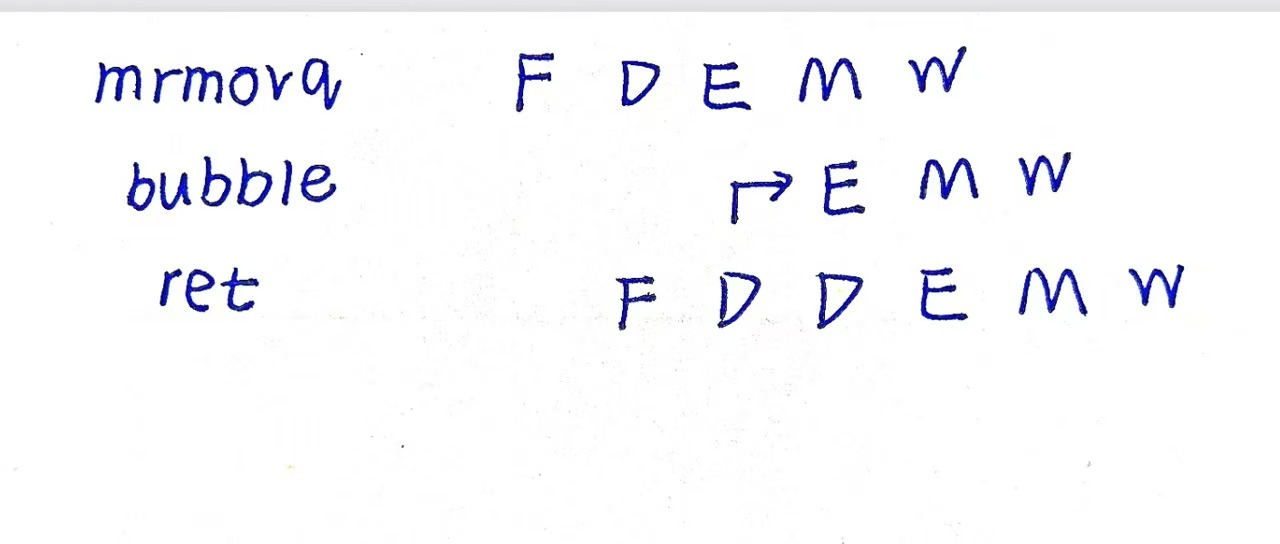 mrmovq F D E M W
bubble ↱ E M W
ret F D D E M W